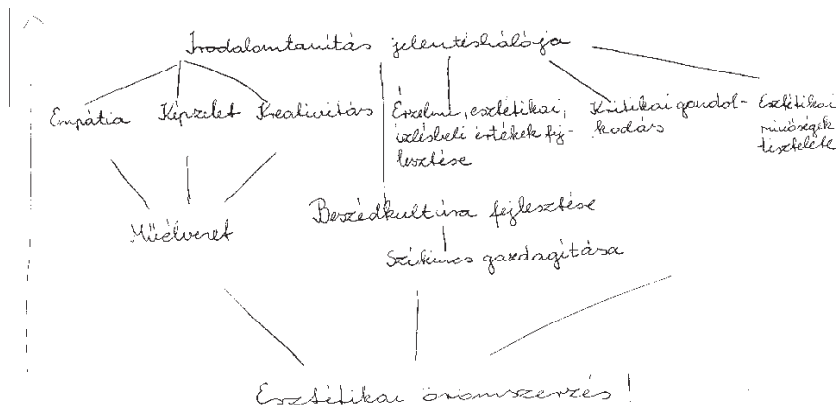 Irodalomtanítás jelentéshálója
Empátia
Képzelet
Kreativitás
Érzelmi, esztétikai,
ízlésbeli értékek fej-
lesztése
Kritikai gondol-
kodás
Esztétikai
minőségek
tisztelete
Műélvezet
Beszédkultúra fejlesztése
Szókincs gazdagítása
Esztétikai örömszerzés!